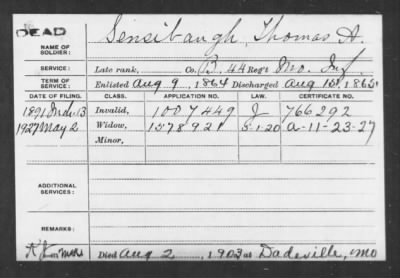 DEAD
NAME OF SOLDIER: Sensibaugh, Thomas A.
SERVICE: Late rank, Co. B, 44 Reg't Mo. Inf.
TERM OF SERVICE: Enlisted Aug 9, 1864 Discharged Aug 15, 1865
DATE OF FILING. CLASS. APPLICATION NO. LAW. CERTIFICATE NO.
1891 13 Invalid, 1007449 J 766292
1927 May 2 Widow, 1578921 5-1-20 A-11-23-27
Minor,
ADDITIONAL SERVICES:
REMARKS:
Died Aug 2, 1903 at Dadeville, Mo